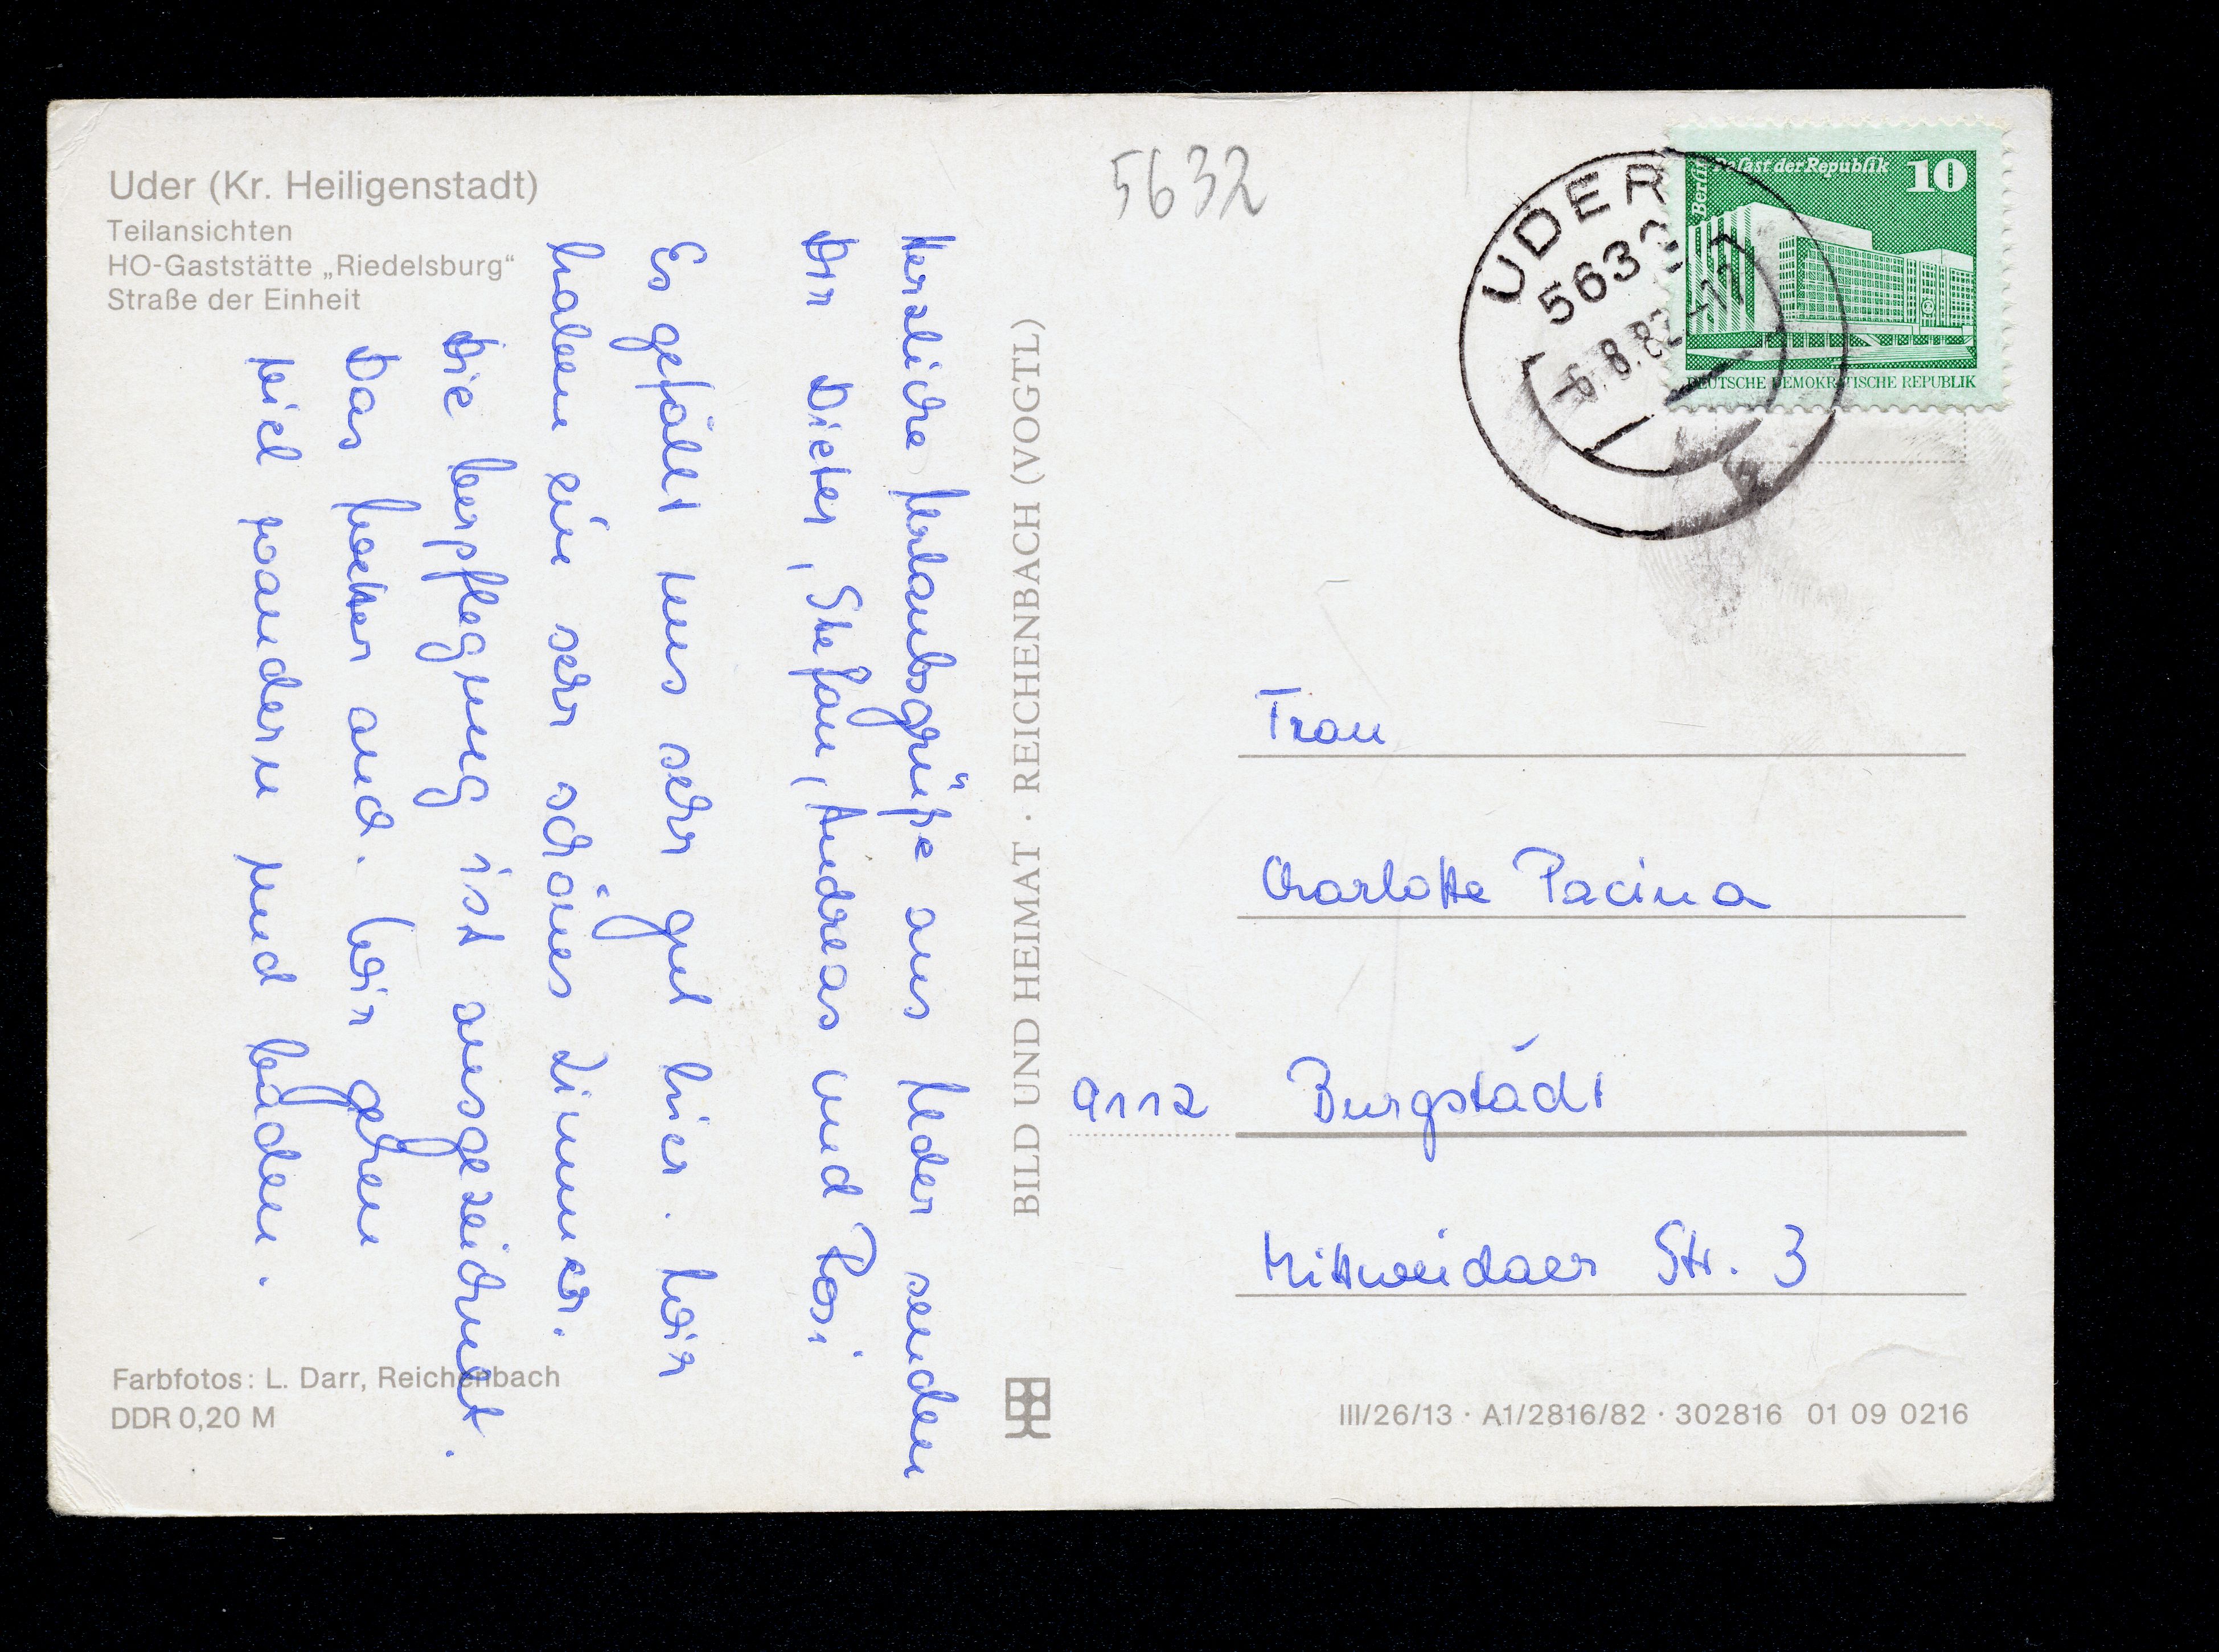 Uder (Kr. Heiligenstadt)
Teilansichten
HO-Gaststätte „Riedelsburg“
Straße der Einheit
Herzliche Urlaubsgrüße aus Uder senden
Dir Dieter, Stefan, Andreas und Rosi
Es gefällt uns sehr gut hier. Wir
haben ein sehr schönes Zimmer.
Die Verpflegung ist ausgezeichnet.
Das Wetter auch. Wir gehen
viel wandern und baden.
Farbfotos: L. Darr, Reichenbach
DDR 0,20 M
BILD UND HEIMAT · REICHENBACH (VOGTL)
5632
UDER
5632
-6.8.82-17
Berlin Palast der Republik 10
DEUTSCHE DEMOKRATISCHE REPUBLIK
Frau
Charlotte Pacina
9112 Burgstädt
Mittweidaer Str. 3
III/26/13 · A1/2816/82 · 302816 01 09 0216